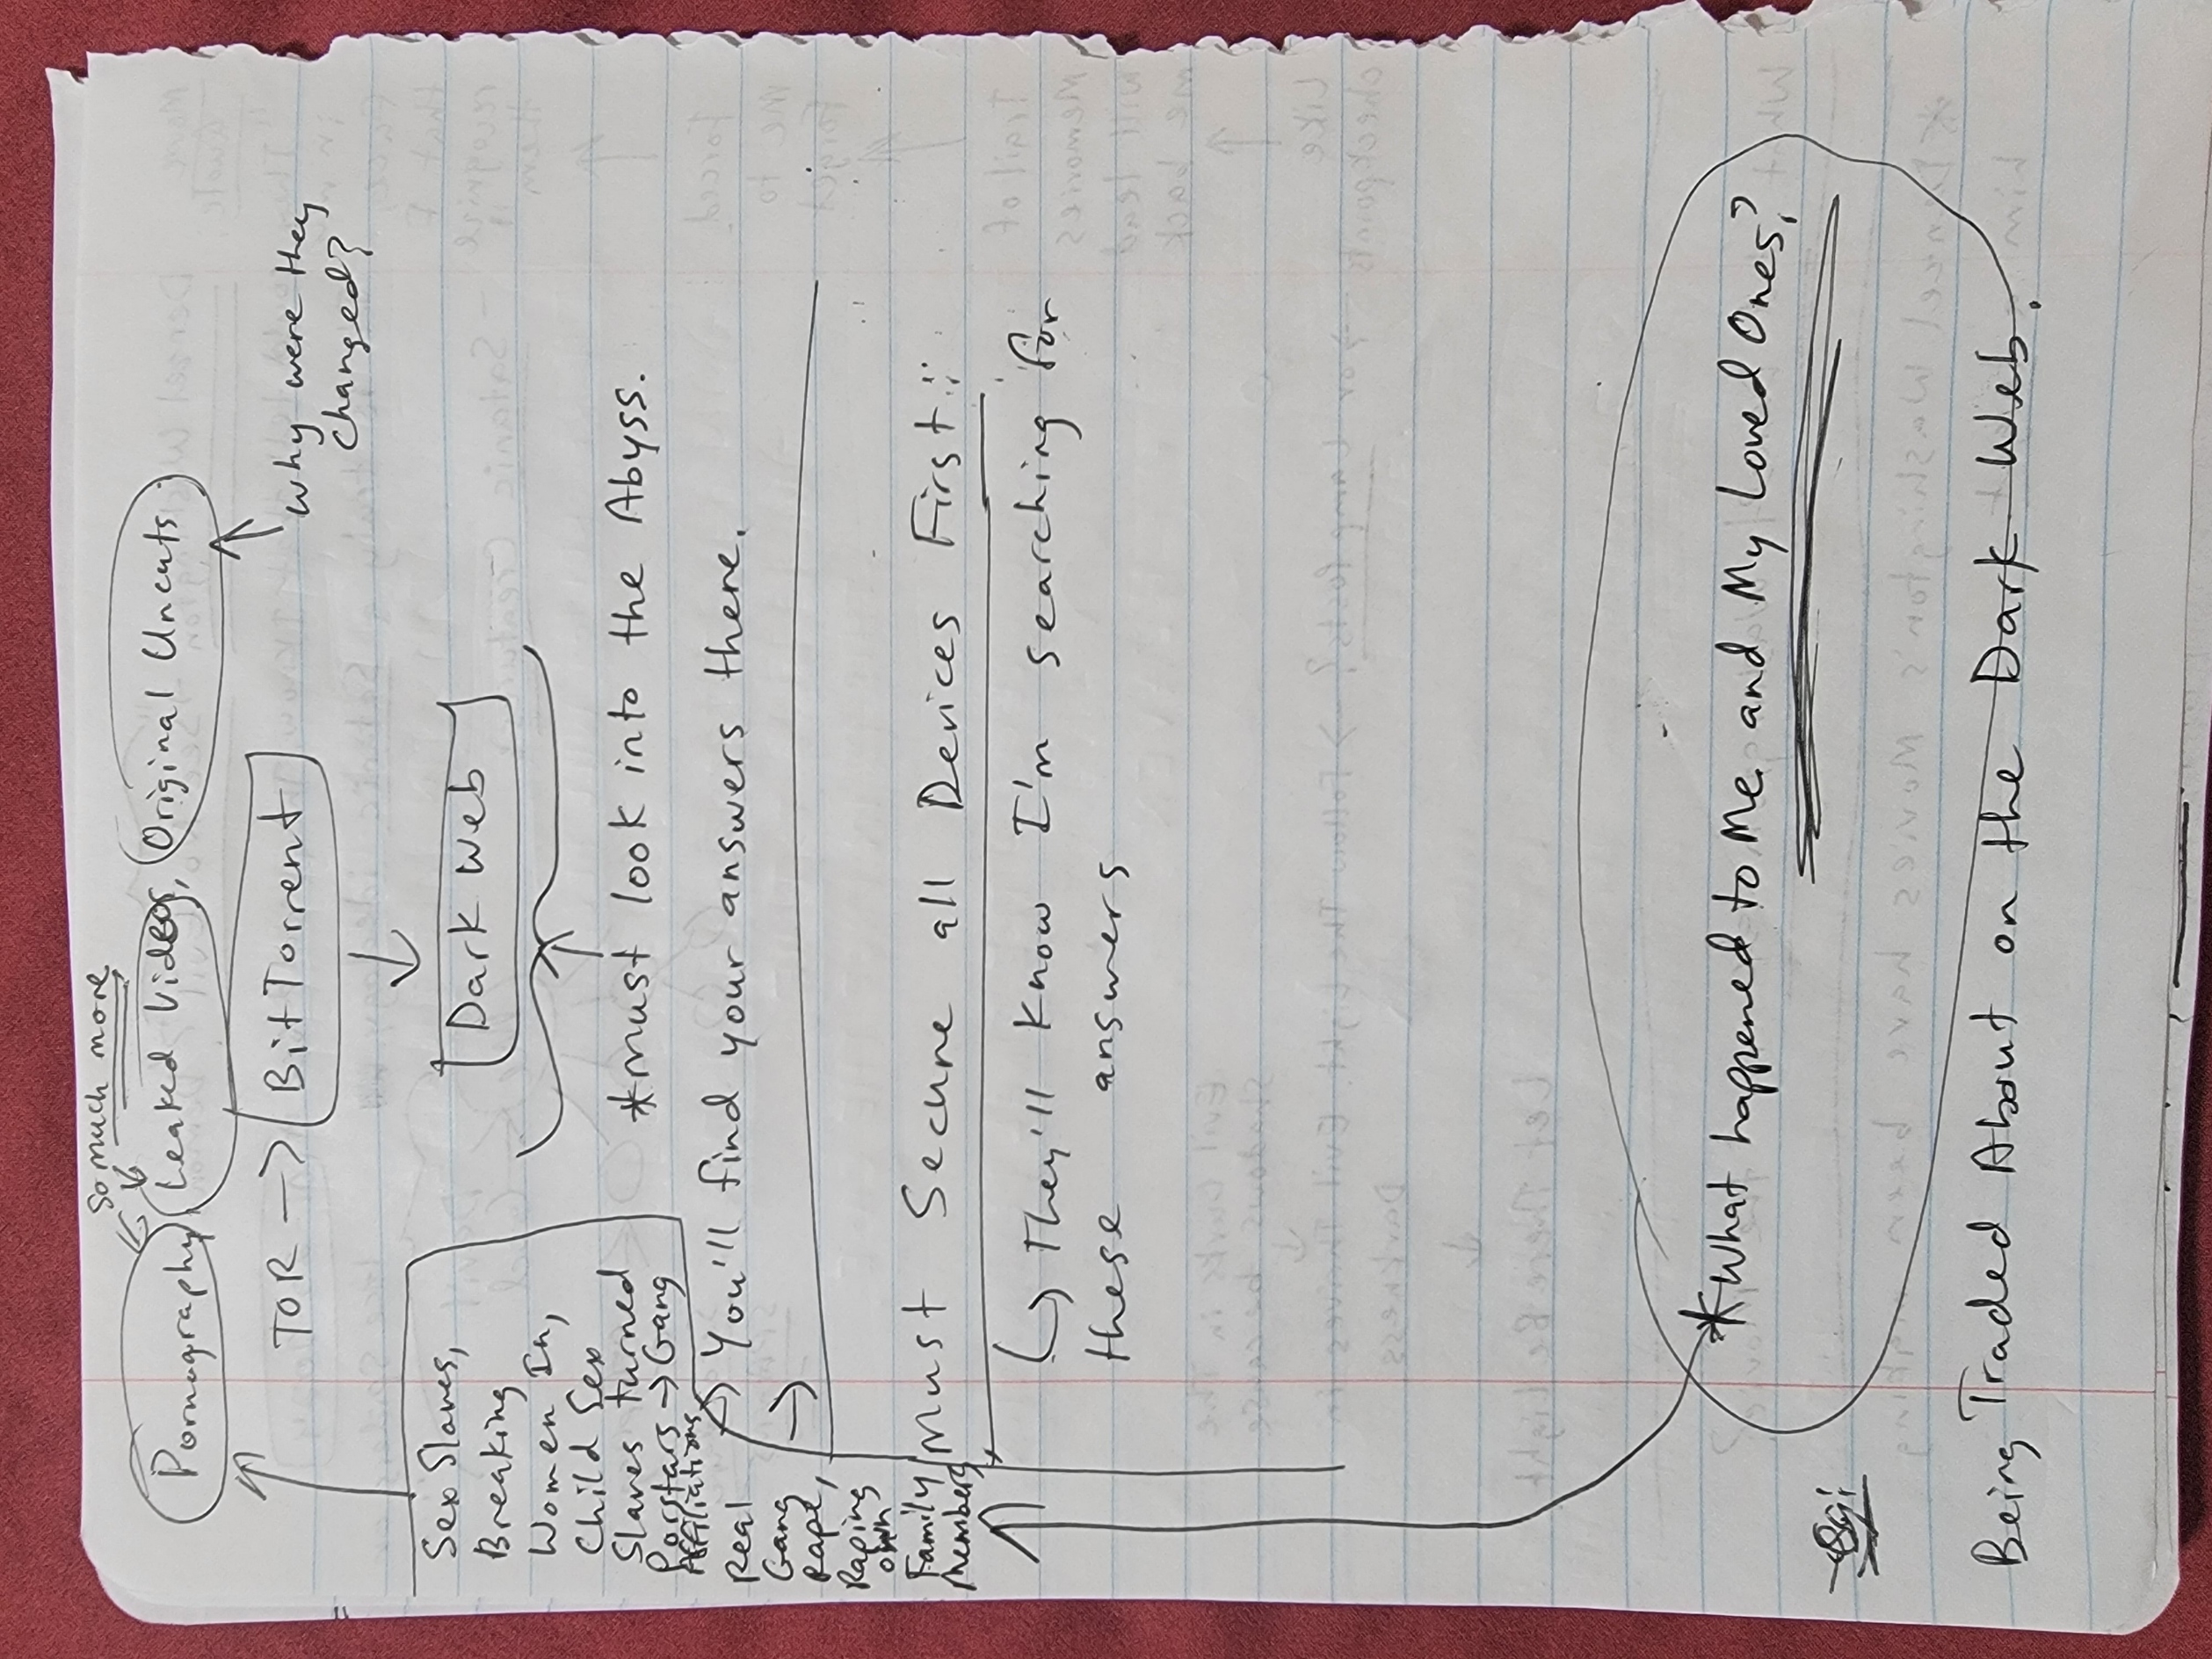 so much more
Pornography, Leaked Videos, Original Uncuts
TOR → BitTorrent
why were they
changed?
Dark Web
*must look into the Abyss.
Sex Slaves,
Breaking
Women In,
Child Sex
Slaves turned
Porstars → Gang
Affiliations
Real
Gang
Rape,
Raping
own
Family
Members
→ You'll find your answers there.
→
Must Secure all Devices First!
↳ They'll know I'm searching for
these answers
*What happened to Me and My Loved Ones?
Being Traded About on the Dark Web.